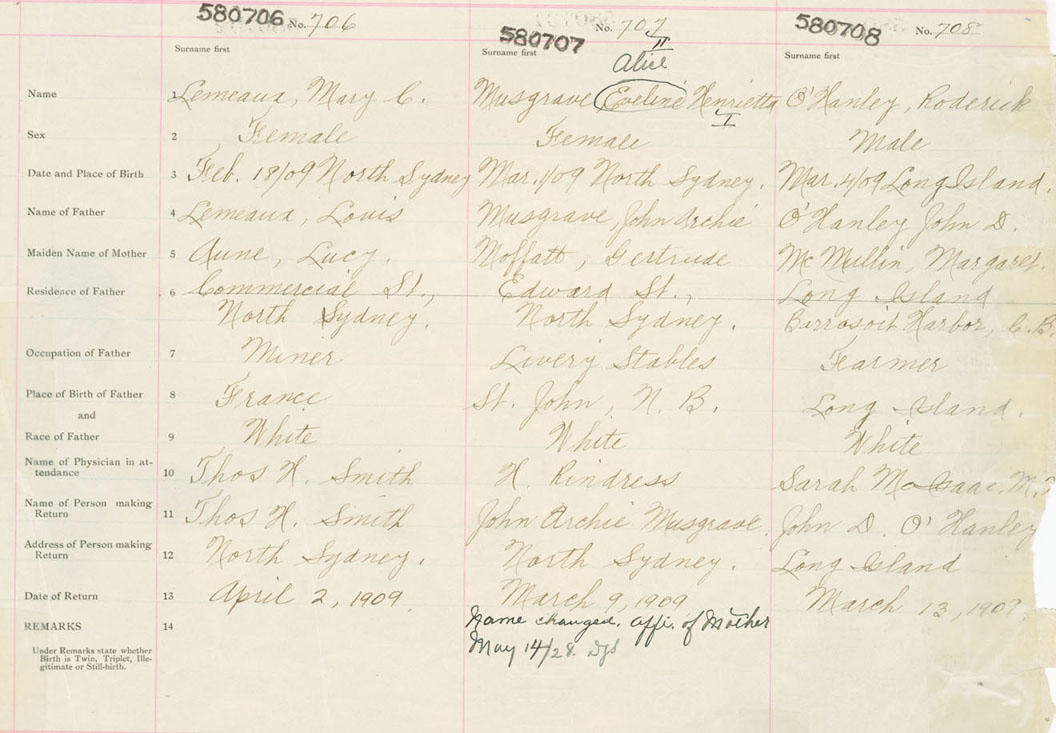 580706 No. 706 580707 No. 707 580708 No. 708
Surname first Surname first Surname first
II
Alice
Name 1 Lemeaux, Mary C. Musgrave Eveline Henrietta O'Hanley, Roderick
I
Sex 2 Female Female Male
Date and Place of Birth 3 Feb. 18/09 North Sydney Mar. 1/09 North Sydney. Mar. 4/09 Long Island.
Name of Father 4 Lemeaux, Louis Musgrave, John Archie O'Hanley John D.
Maiden Name of Mother 5 Aune, Lucy. Moffatt, Gertrude McMillin, Margaret.
Residence of Father 6 Commercial St., Edward St., Long Island
North Sydney. North Sydney. Harbor, C.B.
Occupation of Father 7 Miner Livery Stables Farmer
Place of Birth of Father 8 France St. John, N.B. Long Island.
and
Race of Father 9 White White White
Name of Physician in at-
tendance 10 Thos H. Smith H. Rindress Sarah McIsaac. M.
Name of Person making
Return 11 Thos H. Smith John Archie Musgrave. John D. O'Hanley
Address of Person making
Return 12 North Sydney. North Sydney. Long Island
Date of Return 13 April 2, 1909. March 9, 1909 March 13, 1909.
REMARKS 14 Name changed. Affi. of Mother
May 14/28.
Under Remarks state whether
Birth is Twin, Triplet, Ille-
gitimate or Still-birth.